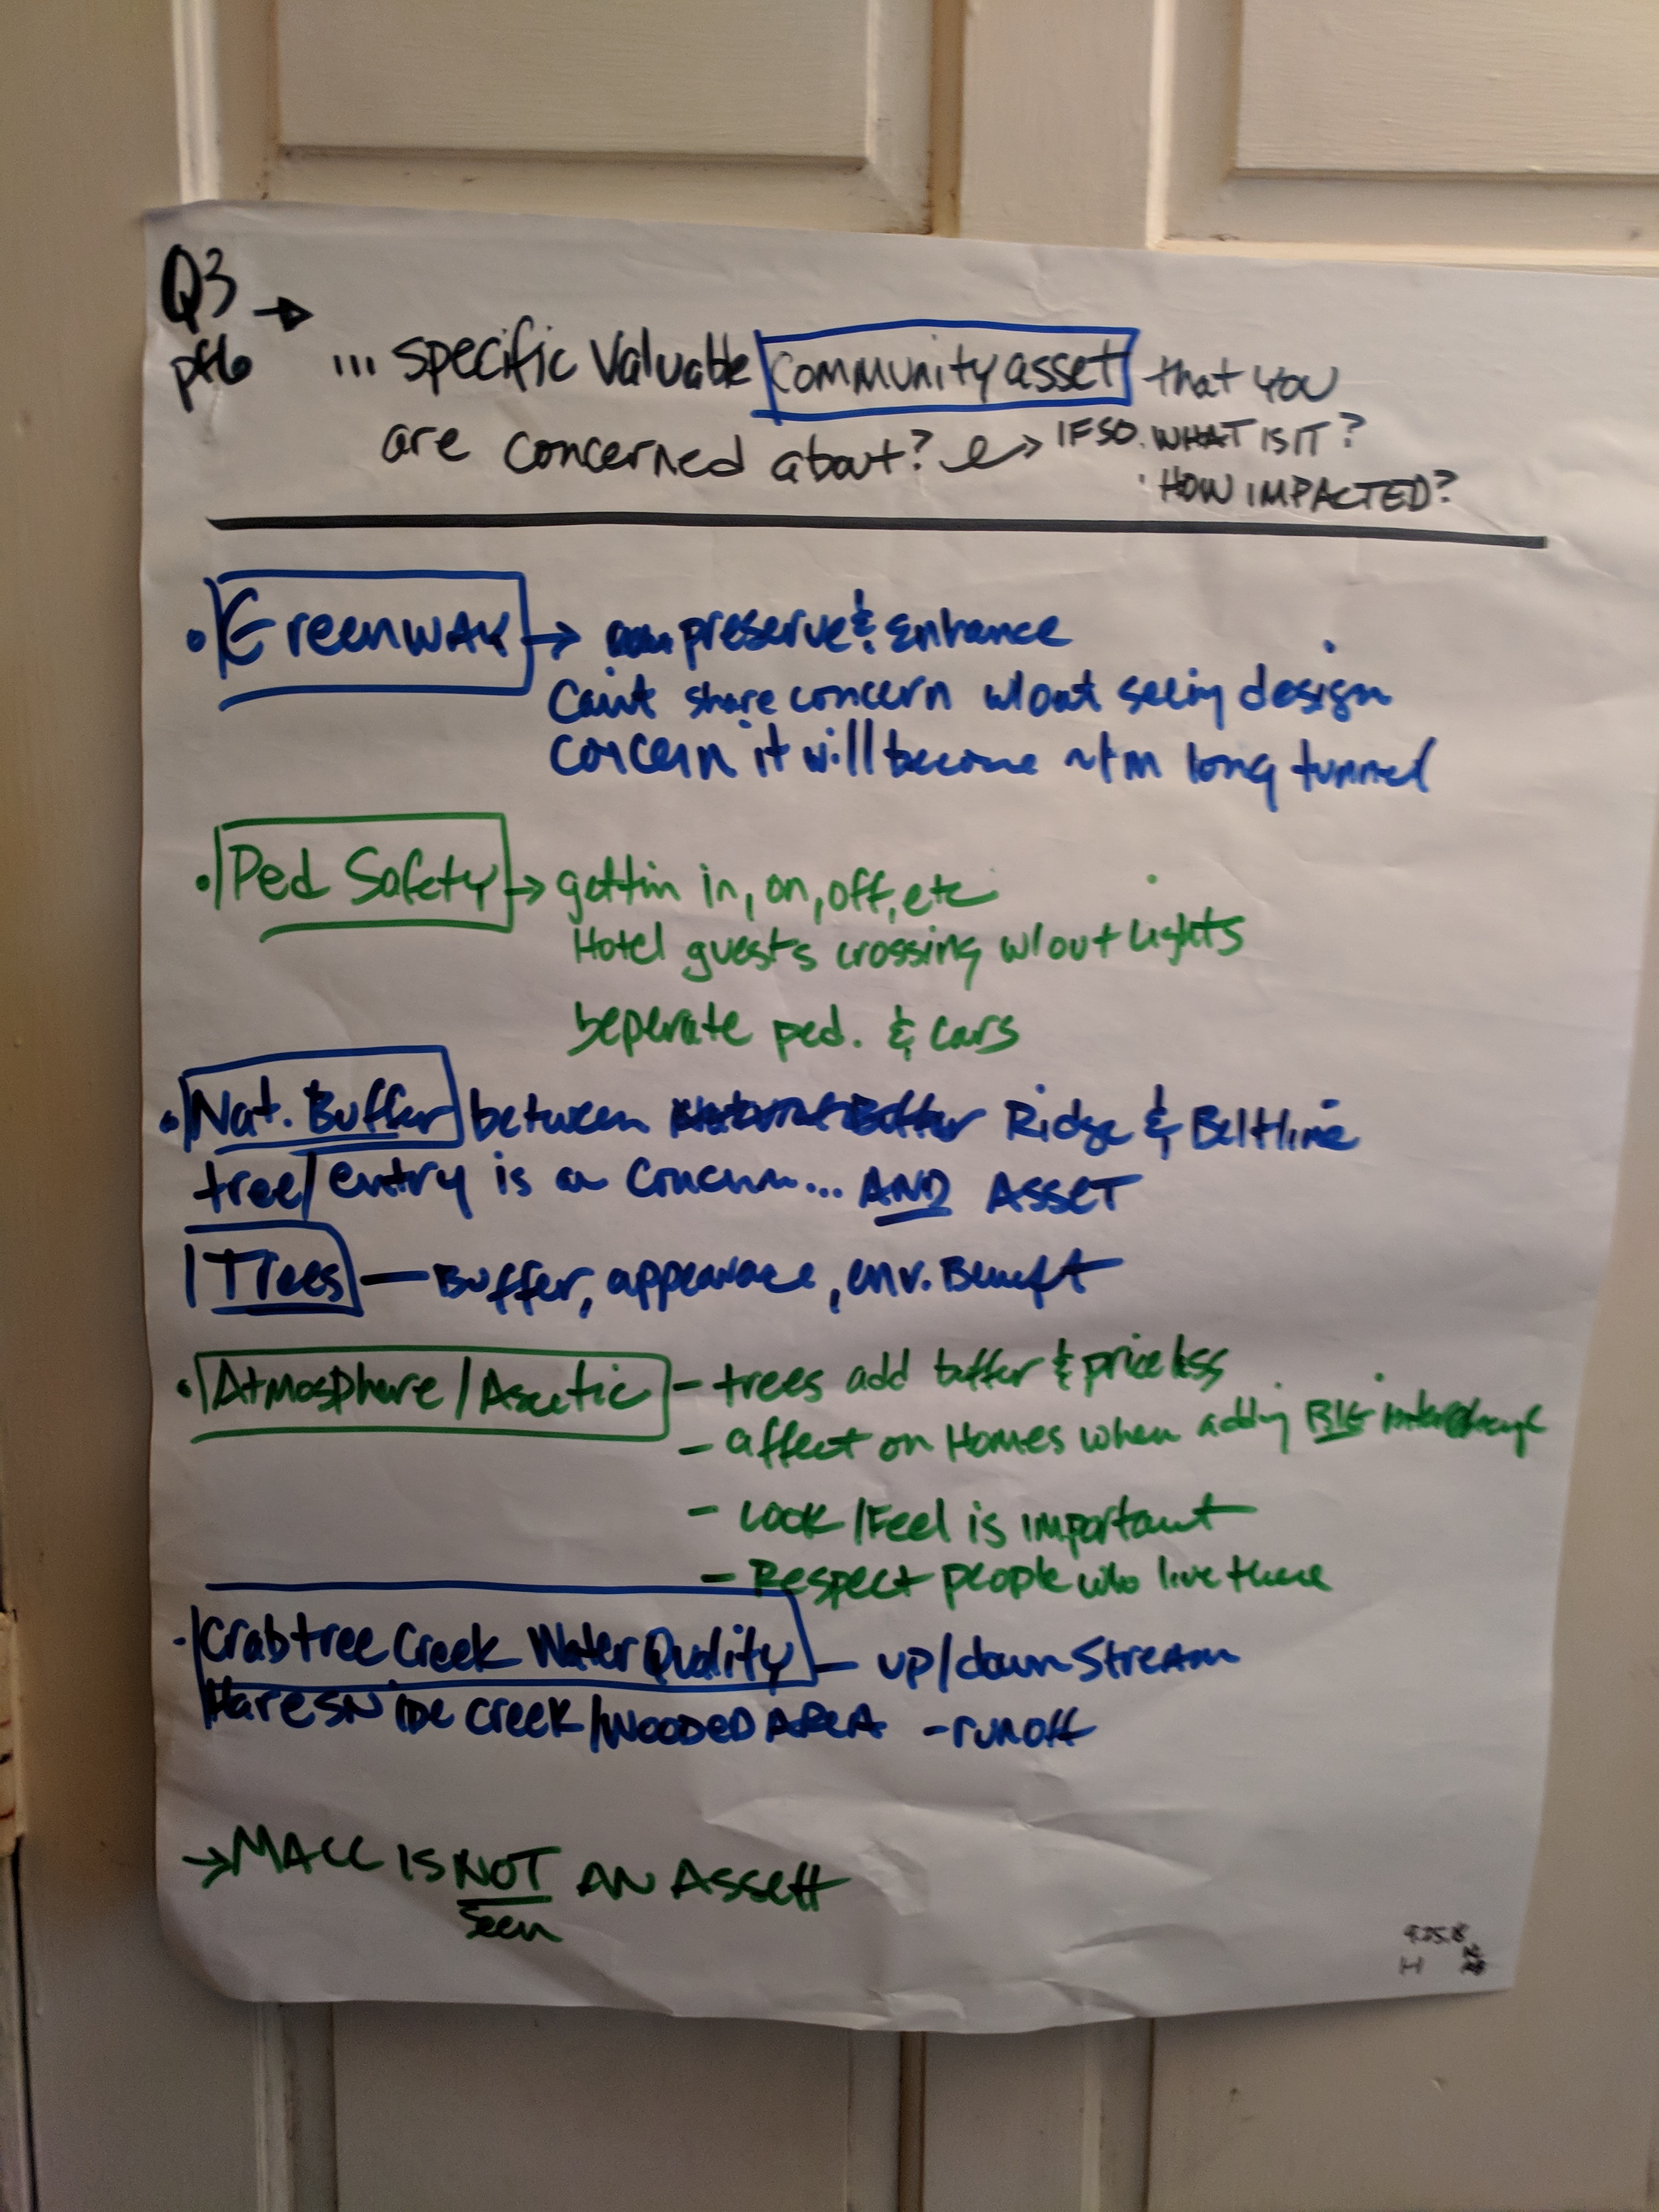 Q3 →
pg 6 ... specific valuable community asset that you
are concerned about? → IF SO. WHAT IS IT?
· HOW IMPACTED?
• Greenway → preserve & enhance
Can't share concern w/out seeing design
concern it will become ~1m long tunnel
• Ped Safety → gettin in, on, off, etc
Hotel guests crossing w/out lights
seperate ped. & cars
• Nat. Buffer between Ridge & Beltline
tree/entry is a concern... AND ASSET
Trees — Buffer, appearance, env. Benefit
• Atmosphere/Asetic - trees add buffer & priceless
- affect on Homes when adding BIG interchange
- Look/Feel is important
- Respect people who live there
- Crabtree Creek Water Quality - up/down Stream
Hare Snipe Creek/WOODED AREA - runoff
→ MACC IS NOT AN ASSETT
seen
9.25.18
H